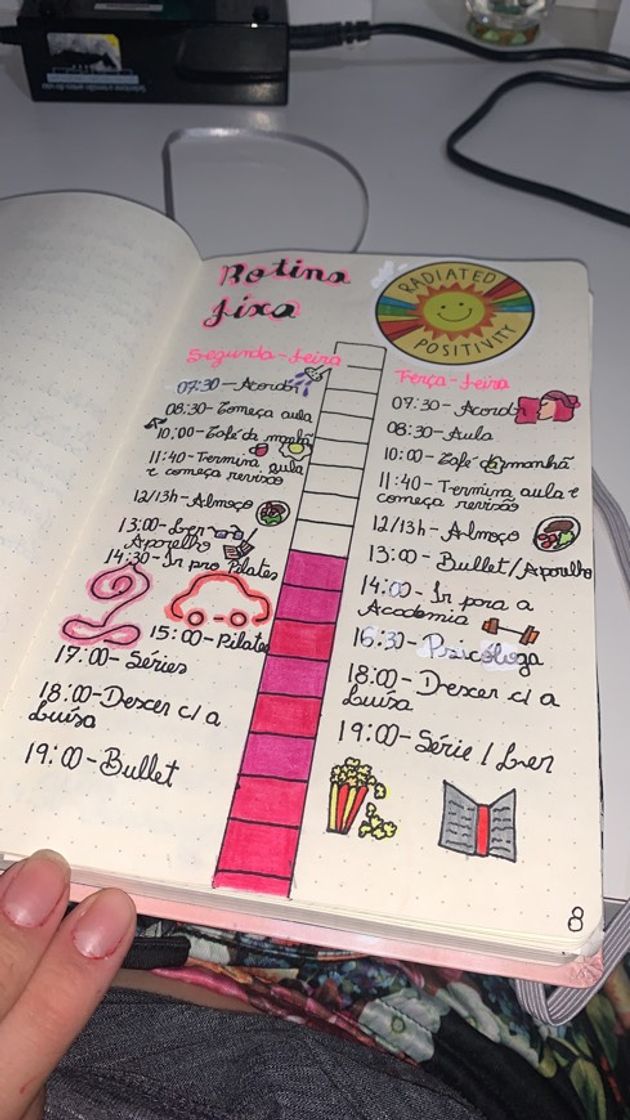 Rotina
fixa
RADIATED
POSITIVITY
Segunda-feira
07:30 - Acordar
08:30 - Começa aula
10:00 - Café da manhã
11:40 - Termina aula
e começa revisão
12/13h - Almoço
13:00 - Ler
Aparelho
14:30 - Ir pro Pilates
15:00 - Pilates
17:00 - Séries
18:00 - Descer c/ a
Luísa
19:00 - Bullet
Terça-feira
07:30 - Acordar
08:30 - Aula
10:00 - Café da manhã
11:40 - Termina aula e
começa revisão
12/13h - Almoço
13:00 - Bullet / Aparelho
14:00 - Ir para a
Academia
16:30 - Psicóloga
18:00 - Descer c/ a
Luísa
19:00 - Série / Ler
8